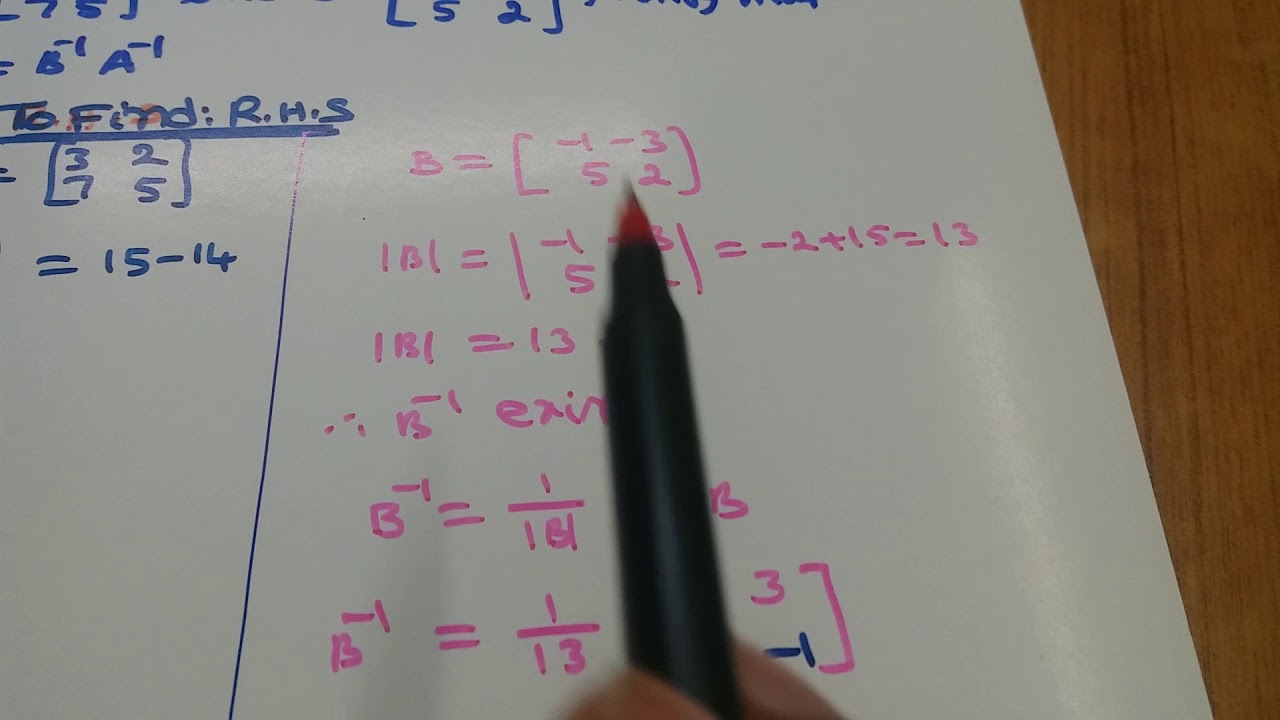 7 5]
[5 2]
= B⁻¹ A⁻¹
To Find: R.H.S
= [3 2
7 5]
= 15-14
B = [-1 -3
5 2]
|B| = |-1 -3
5 | = -2+15=13
|B| = 13
∴ B⁻¹
B⁻¹ = 1/|B| B
B⁻¹ = 1/13 3
-1]